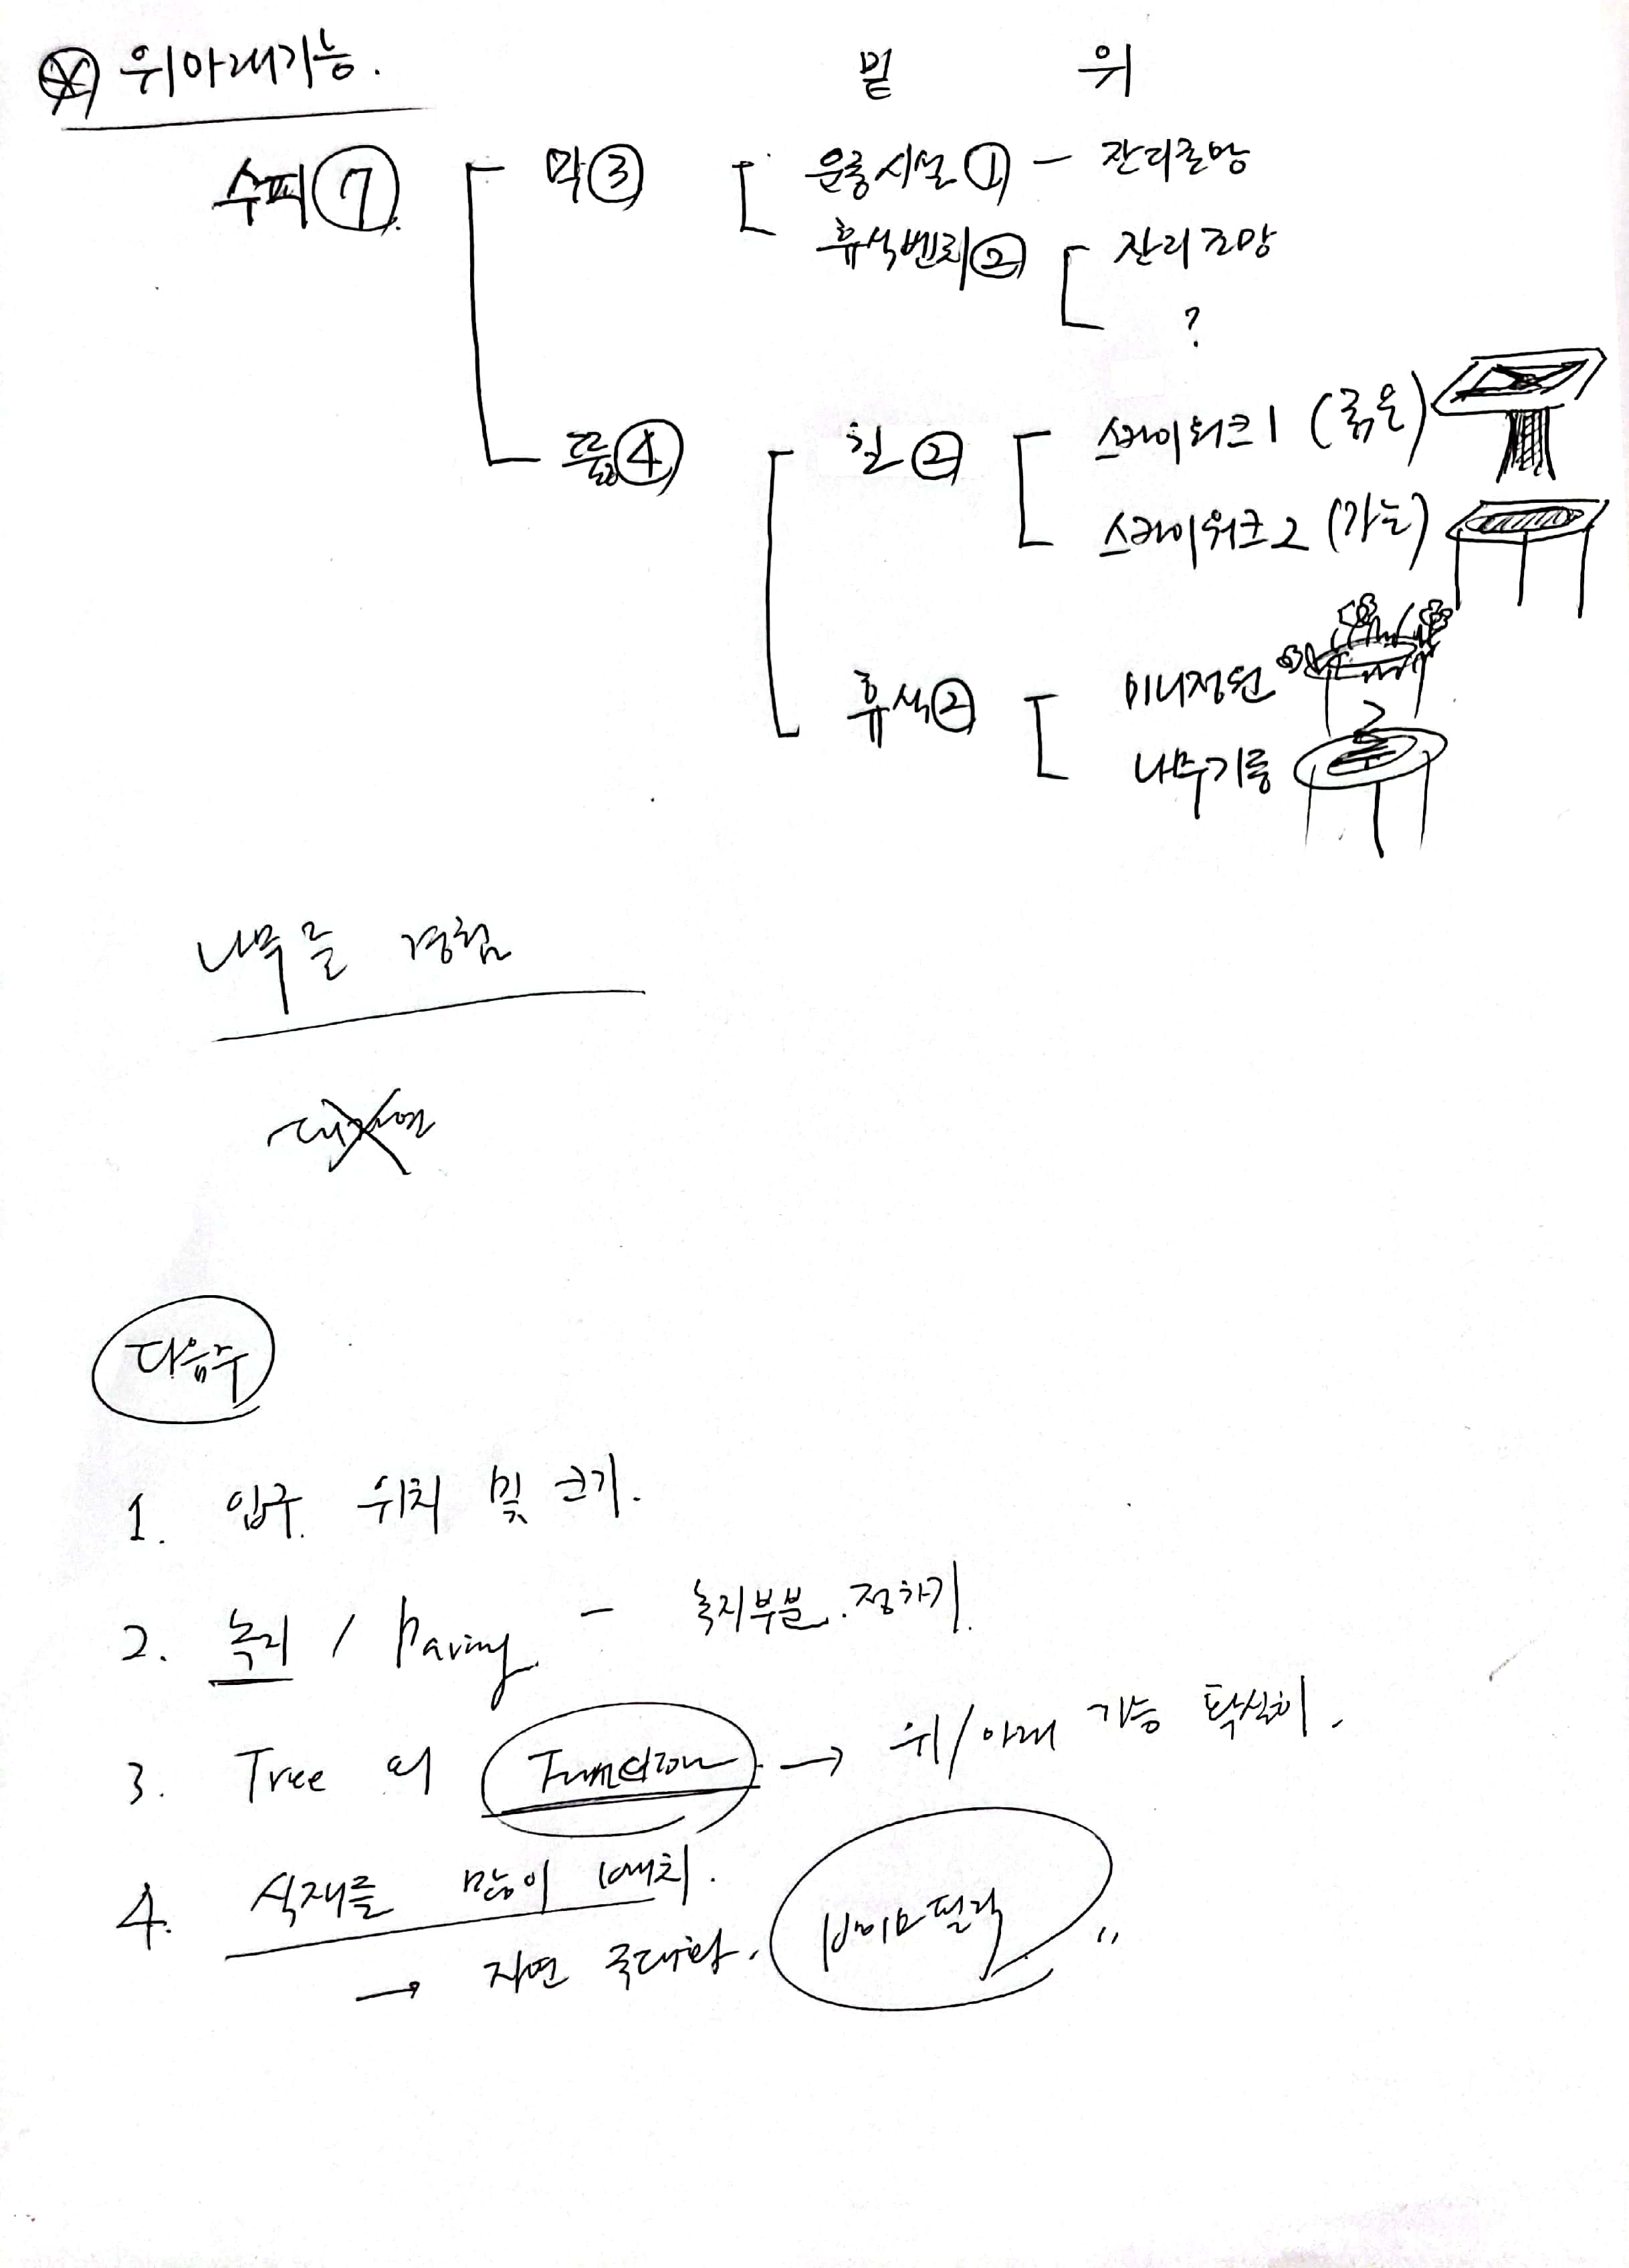 ※ 위아래기능.
밑 위
수피 ⑦ 막 ③ 운동시설 ① - 잔디조망
휴식벤치 ② 잔디조망
?
틈 ④ ② 스카이워크1 (굵은)
스카이워크2 (가는)
휴식 ② 미니정원
나무기둥
나무를 경험
다음주
1. 입구 위치 및 크기.
2. 녹지 / paving - 녹지부분.정하기.
3. Tree 의 Function → 위/아래 기능 확실히.
4. 식재를 많이 배치.
→ 자연 극대화. 바이오필릭 "